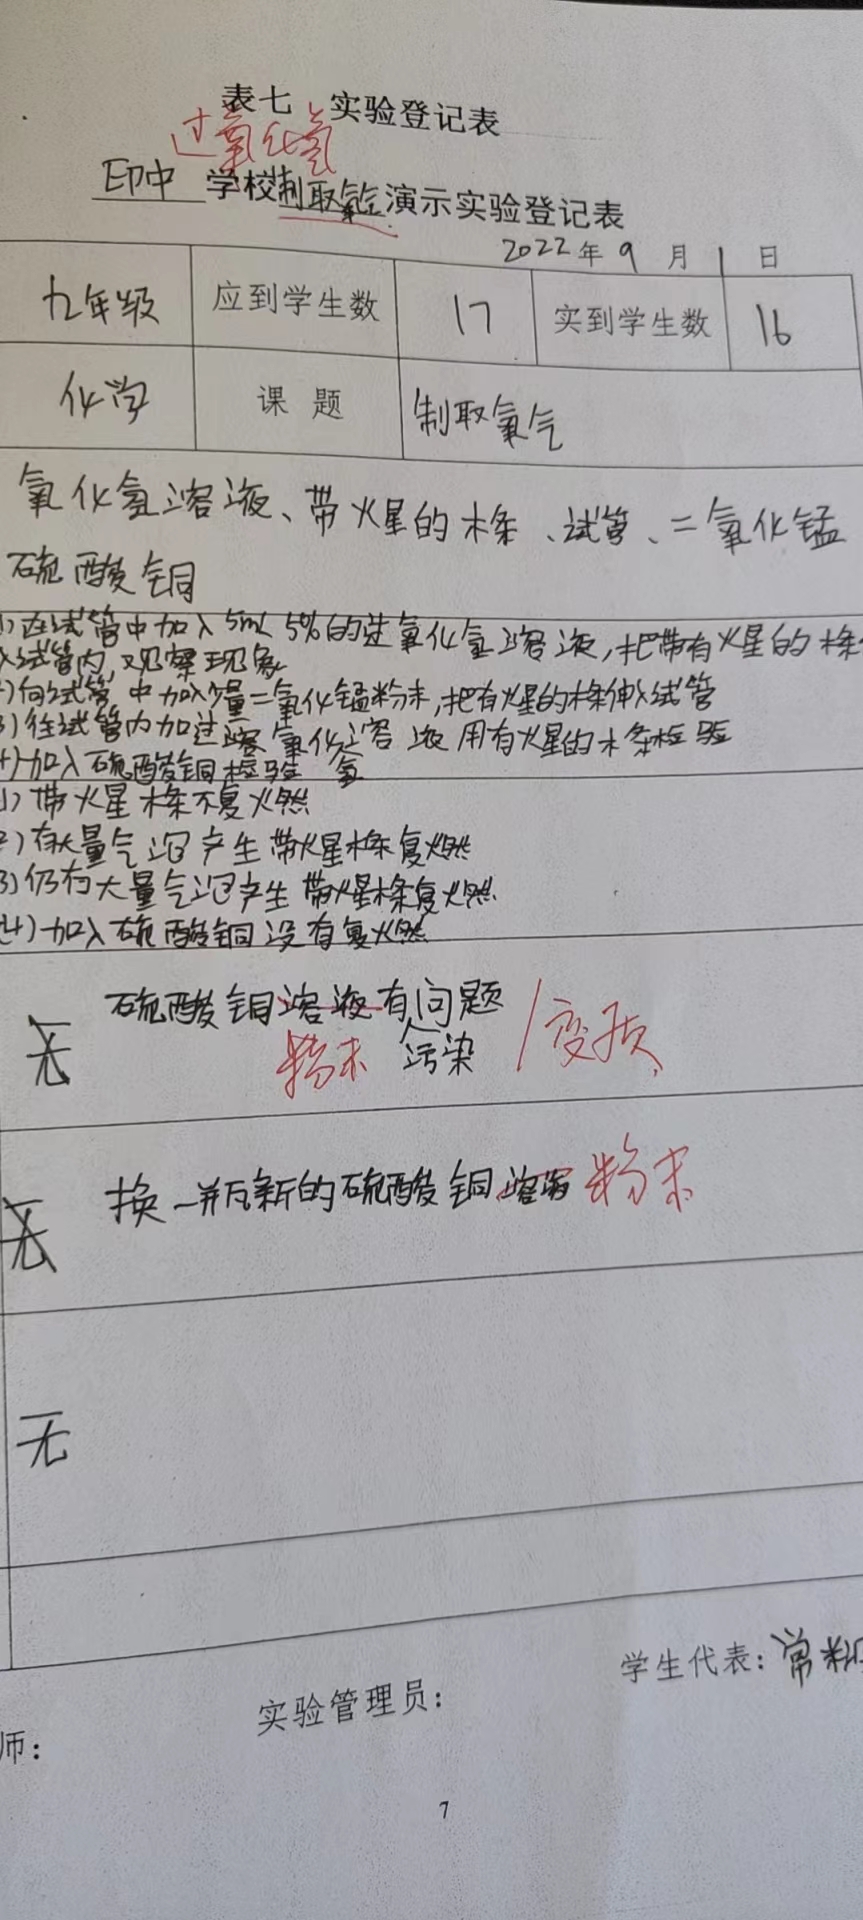 表七 实验登记表
过氧化氢
印中 学校制取氧气演示实验登记表
2022年9月1日
九年级 应到学生数 17 实到学生数 16
化学 课题 制取氧气
氧化氢溶液、带火星的木条、试管、二氧化锰
硫酸铜
1)在试管中加入5mL 5%的过氧化氢溶液,把带有火星的木条
入试管内,观察现象
2)向试管中加入少量二氧化锰粉末,把有火星的木条伸入试管
3)往试管内加过氧化氢溶液用有火星的木条检验
4)加入硫酸铜检验
1)带火星木条不复燃
2)有大量气泡产生带火星木条复燃
3)仍有大量气泡产生带火星木条复燃
(4)加入硫酸铜没有复燃
无 硫酸铜溶液有问题
粉末 污染 /变质
无 换一瓶新的硫酸铜溶液 粉末
无
学生代表:常
实验管理员:
师:
7